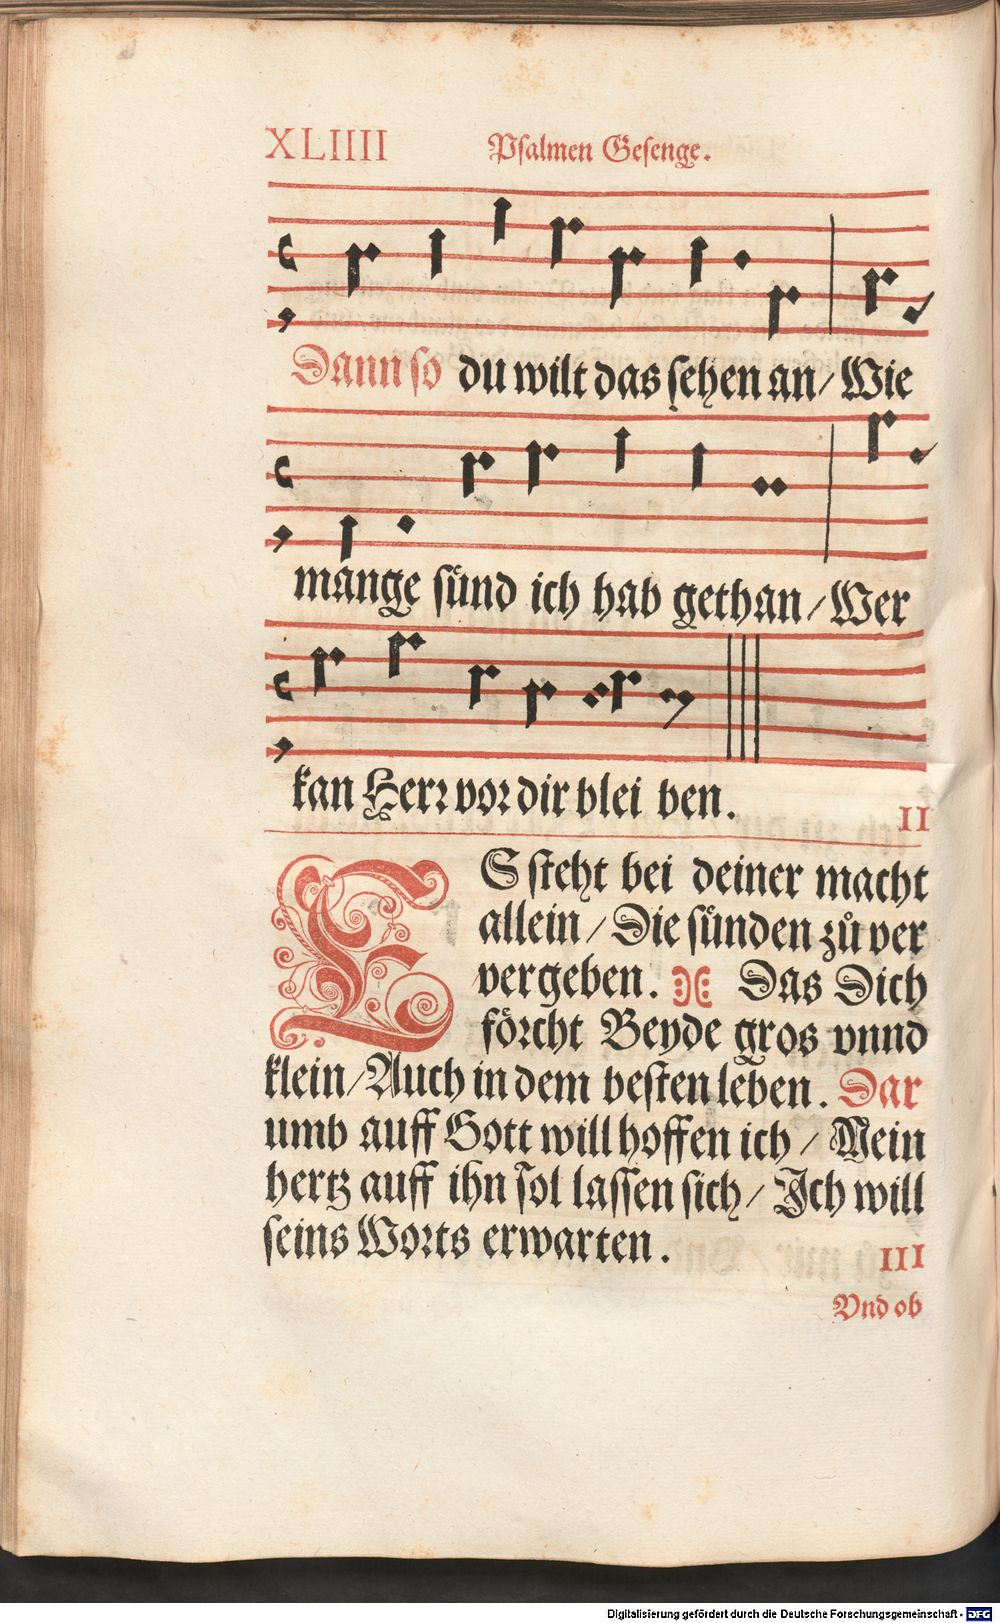 XLIIII Psalmen Gesenge.
Dann so du wilt das sehen an/ Wie
mange sünd ich hab gethan/ Wer
kan Herr vor dir blei ben.
II
ES steht bei deiner macht
allein/ Die sünden zů ver
vergeben. Das Dich
förcht Beyde gros vnnd
klein/ Auch in dem besten leben. Dar
umb auff Gott will hoffen ich/ Mein
hertz auff ihn sol lassen sich/ Ich will
seins Worts erwarten.
III
Vnd ob
Digitalisierung gefördert durch die Deutsche Forschungsgemeinschaft - DFG